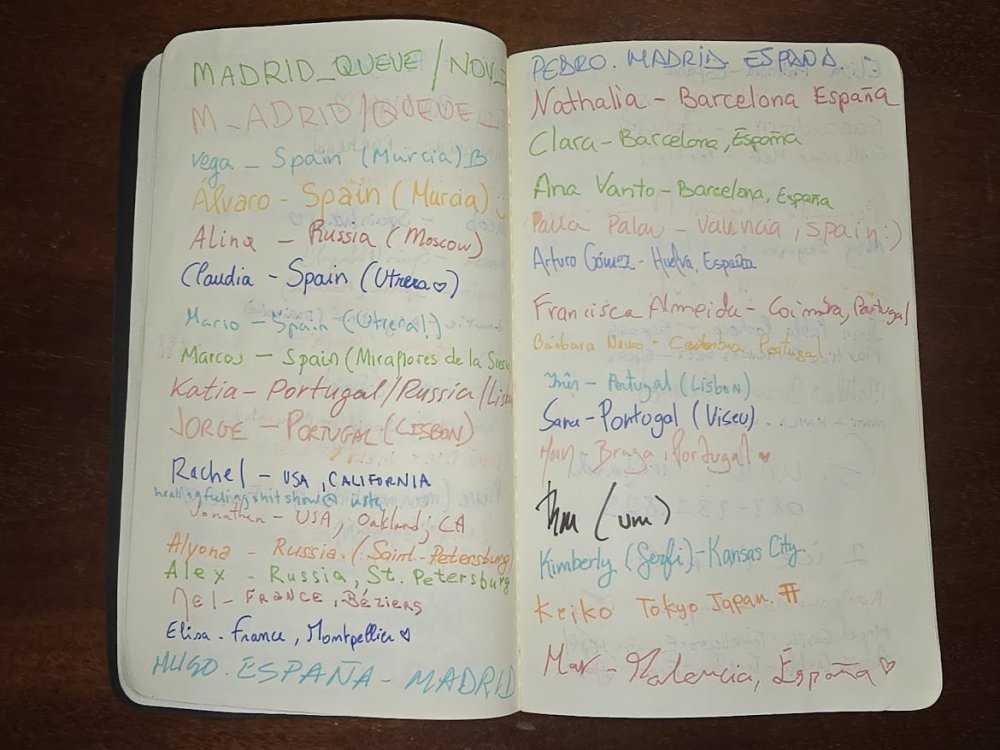 MADRID_QUEVE / NOV_
M_ADRID/QUEVE_
Vega – Spain (Murcia) B
Álvaro - Spain (Murcia) :)
Alina – Russia (Moscow)
Claudia - Spain (Utrera♡)
Mario - Spain (Utrera!)
Marcos – Spain (Miraflores de la Sierr
Katia - Portugal/Russia/Lisb
JORGE – PORTUGAL (LISBON)
Rachel – USA, CALIFORNIA
healingfeelingshitshow@ insta
Jonathan - USA, Oakland, CA
Alyona - Russia. (Saint-Petersburg
Alex - Russia, St. Petersburg
Nel - FRANCE, Béziers
Elisa - France, Montpellier ♡
HUGO. ESPAÑA - MADRID
PEDRO. MADRID. ESPAÑA.
Nathalia - Barcelona España
Clara - Barcelona, España
Ana Vanto - Barcelona, España
Paula Palau - Valencia, Spain :)
Arturo Gómez - Huelva, España
Francisca Almeida - Coimbra, Portugal
Bárbara - Portugal
- Portugal (Lisbon)
Sara - Portogal (Viseu)
- Braga, Portugal ♥
(um)
Kimberly (Serfi) - Kansas City
Keiko Tokyo Japan
Mar - Valencia, España ♡